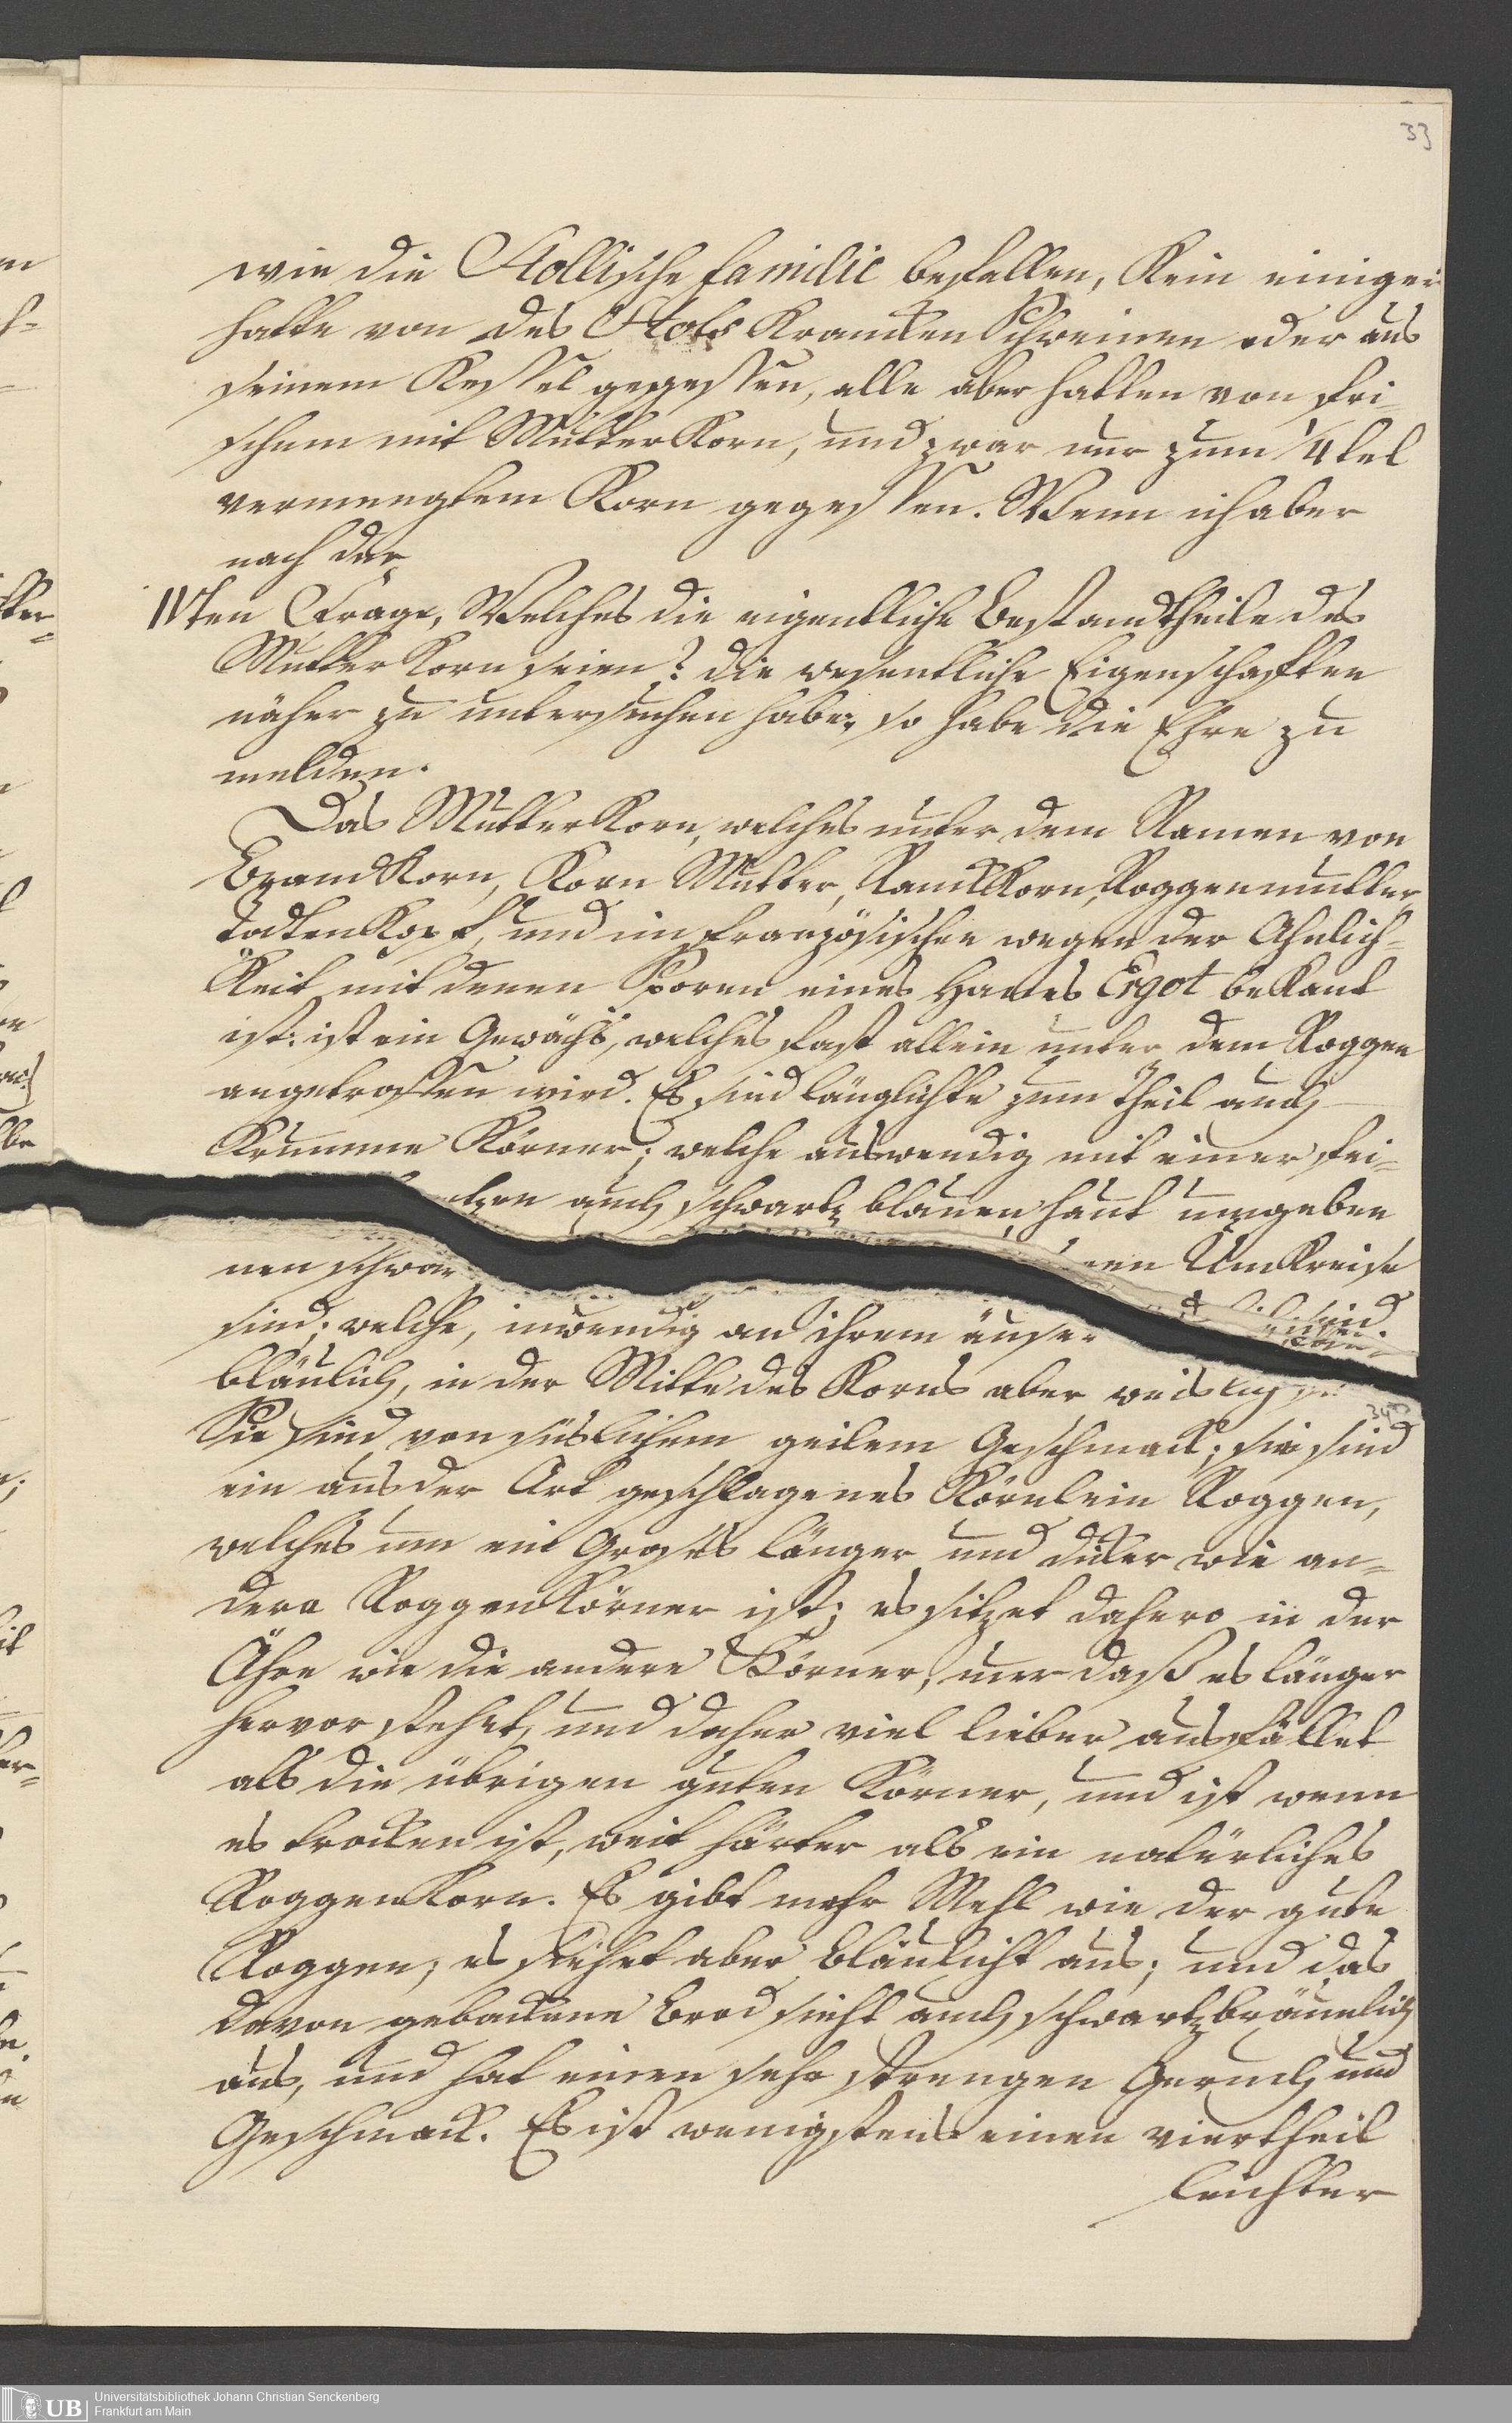 33
wie die Stollische familie befallen, kein einiger
hatte von des Stols krancken Schweinen oder aus
seinem Kessel gegessen, alle aber hatten von fri-
schem mit Mutterkorn, und zwar nur zum 1/4tel
vermengtem Korn gegessen. Wenn ich aber
nach der
IVten Frage, Welches die eigentliche Bestandtheile des
Mutterkorn seien? die wesentliche Eigenschafften
näher zu untersuchen habe, so habe die Ehre zu
melden.
Das Mutterkorn, welches unter dem Namen von
Brandkorn, Korn Mutter, Roggenmutter,
Todtenkopf, und im französischen wegen der Ähnlich-
keit mit denen Sporen eines Hanes Ergot bekant
ist: ist ein Gewächs, welches fast allein unter dem Roggen
angetroffen wird. Es sind länglichte zum Theil auch
krumme Körner; welche auswendig mit einer fei-
auch schwartz blauen haut umgeben
nen schwar
Umkreise
sind; welche, inwendig an ihrem äuser
sind.
bläulich, in der Mitte des Korns aber weislich
34
Sie sind von süslichem geilem Geschmack; sie sind
ein aus der Art geschlagenes Körnlein Roggen,
welches um ein Groses länger und dicker wie an-
dere Roggenkörner ist; es sitzet dahero in der
Ähre wie die andere Körner, nur daß es länger
hervor stehet, und daher viel lieber ausfället
als die übrigen guten Körner, und ist wenn
es trocken ist, weit härter als ein natürliches
Roggenkorn. Es gibt mehr Mehl wie der gute
Roggen; es siehet aber bläulicht aus; und das
davon gebackene Brod sieht auch schwartzbräunlich
aus, und hat einen sehr strengen Geruch und
Geschmack. Es ist wenigstens einen viertheil
leichter
UB
Universitätsbibliothek Johann Christian Senckenberg
Frankfurt am Main